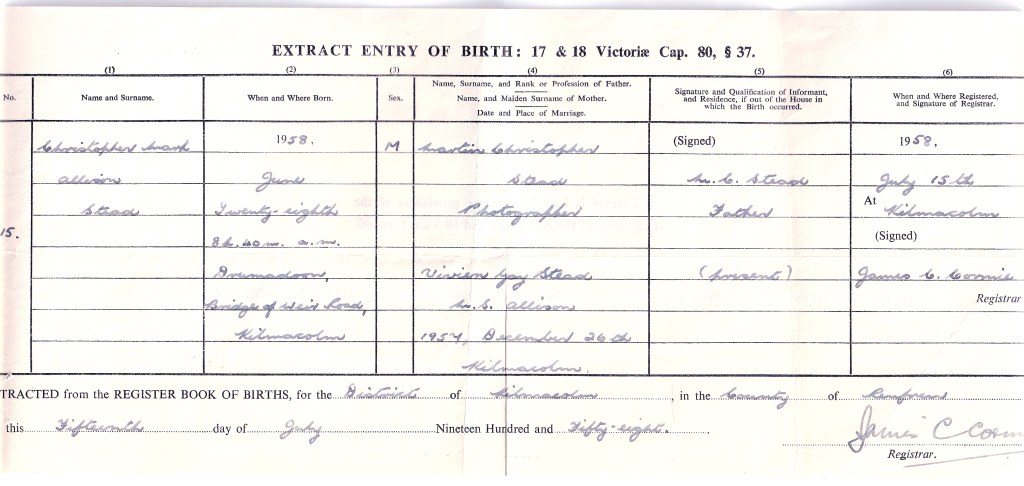 EXTRACT ENTRY OF BIRTH: 17 & 18 Victoriæ Cap. 80, § 37.
(1) (2) (3) (4) (5) (6)
No.
Name and Surname.
When and Where Born.
Sex.
Name, Surname, and Rank or Profession of Father.
Name, and Maiden Surname of Mother.
Date and Place of Marriage.
Signature and Qualification of Informant,
and Residence, if out of the House in
which the Birth occurred.
When and Where Registered,
and Signature of Registrar.
15.
Christopher Mark
Allison
Stead
1958,
June
Twenty-eighth
8h. 40m. a.m.
Drumadoon,
Bridge of Weir Road,
Kilmacolm
M
Martin Christopher
Stead
Photographer
Vivien Gay Stead
M.S. Allison
1957, December 26th
Kilmacolm.
(Signed)
M. C. Stead
Father
(present)
1958,
July 15th
At Kilmacolm
(Signed)
James C. Cormie
Registrar
TRACTED from the REGISTER BOOK OF BIRTHS, for the District of Kilmacolm, in the County of Renfrew
this Fifteenth day of July Nineteen Hundred and Fifty-eight.
James C Corm
Registrar.